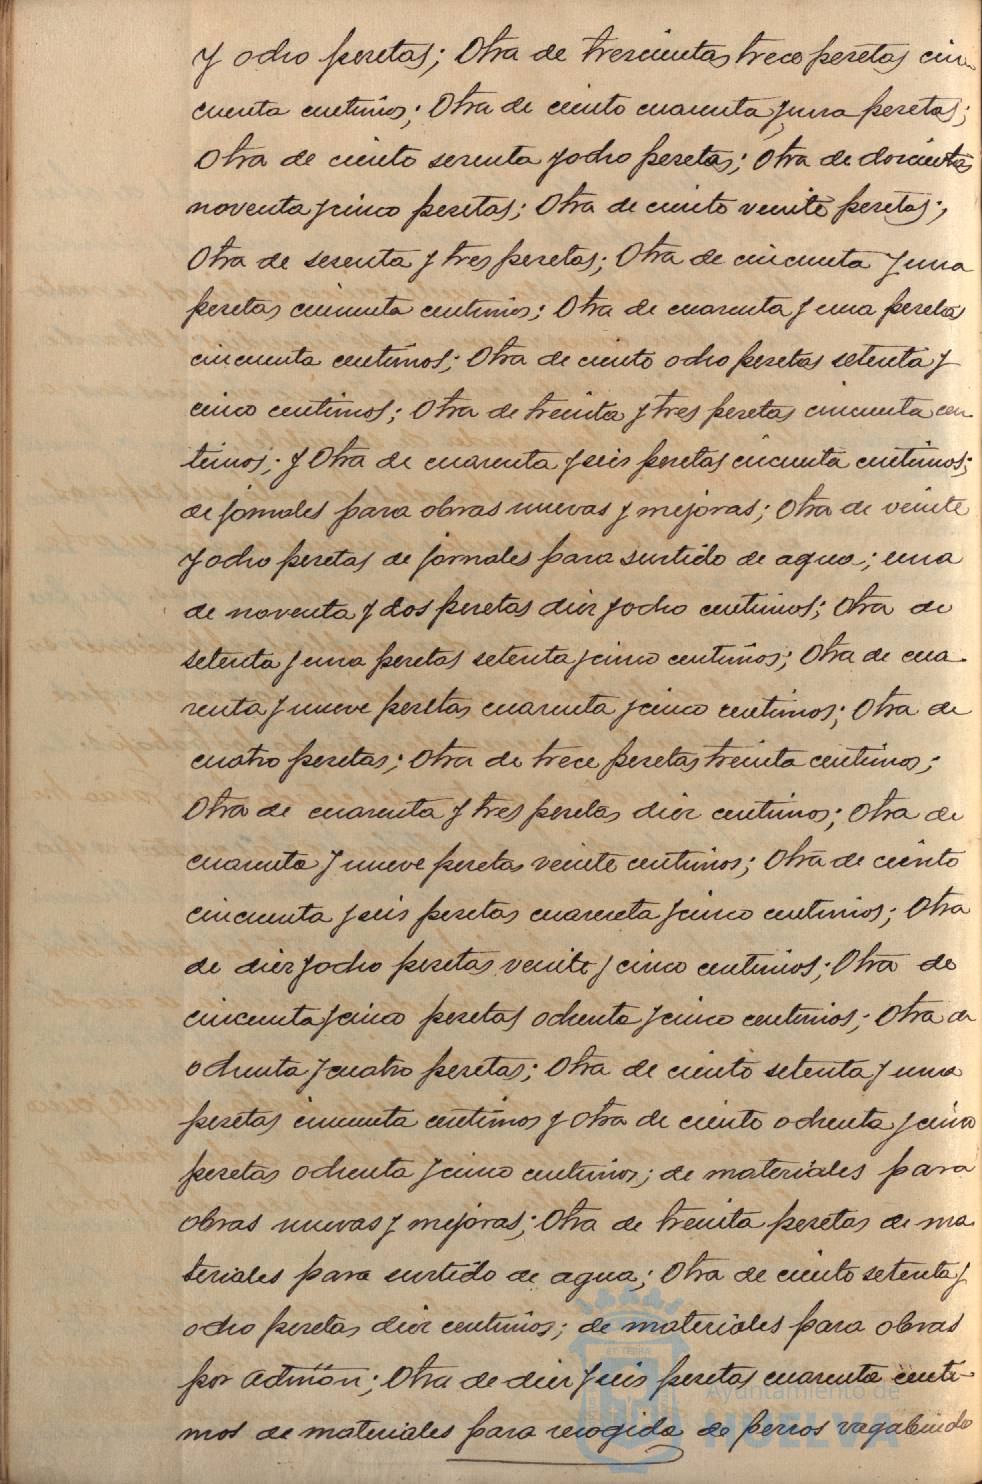 y ocho pesetas; Otra de trescientas trece pesetas cin-
cuenta centimos; Otra de ciento cuarenta y una pesetas;
Otra de ciento sesenta y ocho pesetas; Otra de doscientas
noventa y cinco pesetas; Otra de ciento veinte pesetas;
Otra de sesenta y tres pesetas; Otra de cincuenta y una
pesetas cincuenta centimos; Otra de cuarenta y una pesetas
cincuenta centimos; Otra de ciento ocho pesetas setenta y
cinco centimos; Otra de treinta y tres pesetas cincuenta cen-
timos; y Otra de cuarenta y seis pesetas cincuenta centimos;
de jornales para obras nuevas y mejoras; Otra de veinte
y ocho pesetas de jornales para surtido de agua; una
de noventa y dos pesetas diez y ocho centimos; Otra de
setenta y una pesetas setenta y cinco centimos; Otra de cua-
renta y nueve pesetas cuarenta y cinco centimos; Otra de
cuatro pesetas; Otra de trece pesetas treinta centimos;
Otra de cuarenta y tres pesetas diez centimos; Otra de
cuarenta y nueve pesetas veinte centimos; Otra de ciento
cincuenta y seis pesetas cuarenta y cinco centimos; Otra
de diez y ocho pesetas veinte y cinco centimos; Otra de
cincuenta y cinco pesetas ochenta y cinco centimos; Otra de
ochenta y cuatro pesetas; Otra de ciento setenta y una
pesetas cincuenta centimos y Otra de ciento ochenta y cinco
pesetas ochenta y cinco centimos; de materiales para
obras nuevas y mejoras; Otra de treinta pesetas de ma
teriales para surtido de agua; Otra de ciento setenta y
ocho pesetas diez centimos; de materiales para obras
por Admón; Otra de diez y seis pesetas cuarenta centi-
mos de materiales para recogida de perros vagabundo
Ayuntamiento de
HUELVA